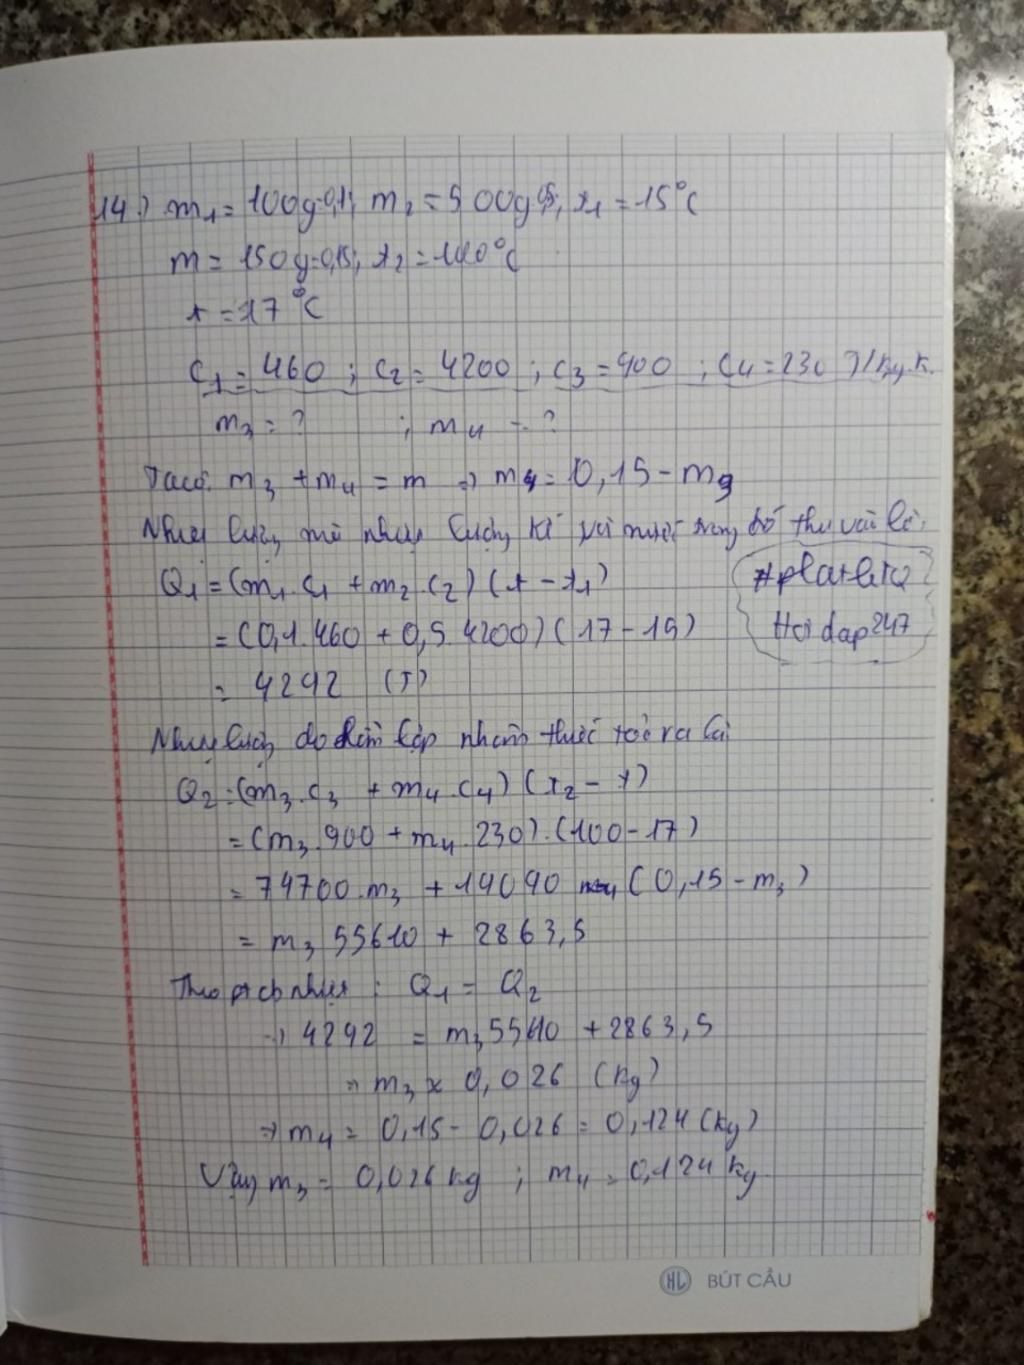 14) m₁ = 100g=0,1; m₂ = 500g=0,5; t₁ = 15°C
m = 150g=0,15; t₂ = 100°C
t = 17°C
C₁ = 460 ; C₂ = 4200 ; C₃ = 900 ; C₄ = 230 J/kg.K.
m₃ = ? ; m₄ = ?
Ta có: m₃ + m₄ = m => m₄ = 0,15 - m₃
Nhiệt lượng mà nhiệt lượng kế và nước trong đó thu vào là:
Q₁ = (m₁.C₁ + m₂.C₂)(t - t₁)
= (0,1.460 + 0,5.4200)(17-15)
= 4292 (J)
#
Hoidap247
Nhiệt lượng do thiếc tỏa ra là
Q₂ = (m₃.C₃ + m₄.C₄)(t₂ - t)
= (m₃.900 + m₄.230).(100-17)
= 74700.m₃ + 19090 (0,15 - m₃)
= m₃ 55610 + 2863,5
Theo ptcb nhiệt : Q₁ = Q₂
=> 4292 = m₃ 55610 + 2863,5
=> m₃ ≈ 0,026 (kg)
=> m₄ = 0,15 - 0,026 = 0,124 (kg)
Vậy m₃ = 0,026 kg ; m₄ = 0,124 kg.
HL BÚT CẦU